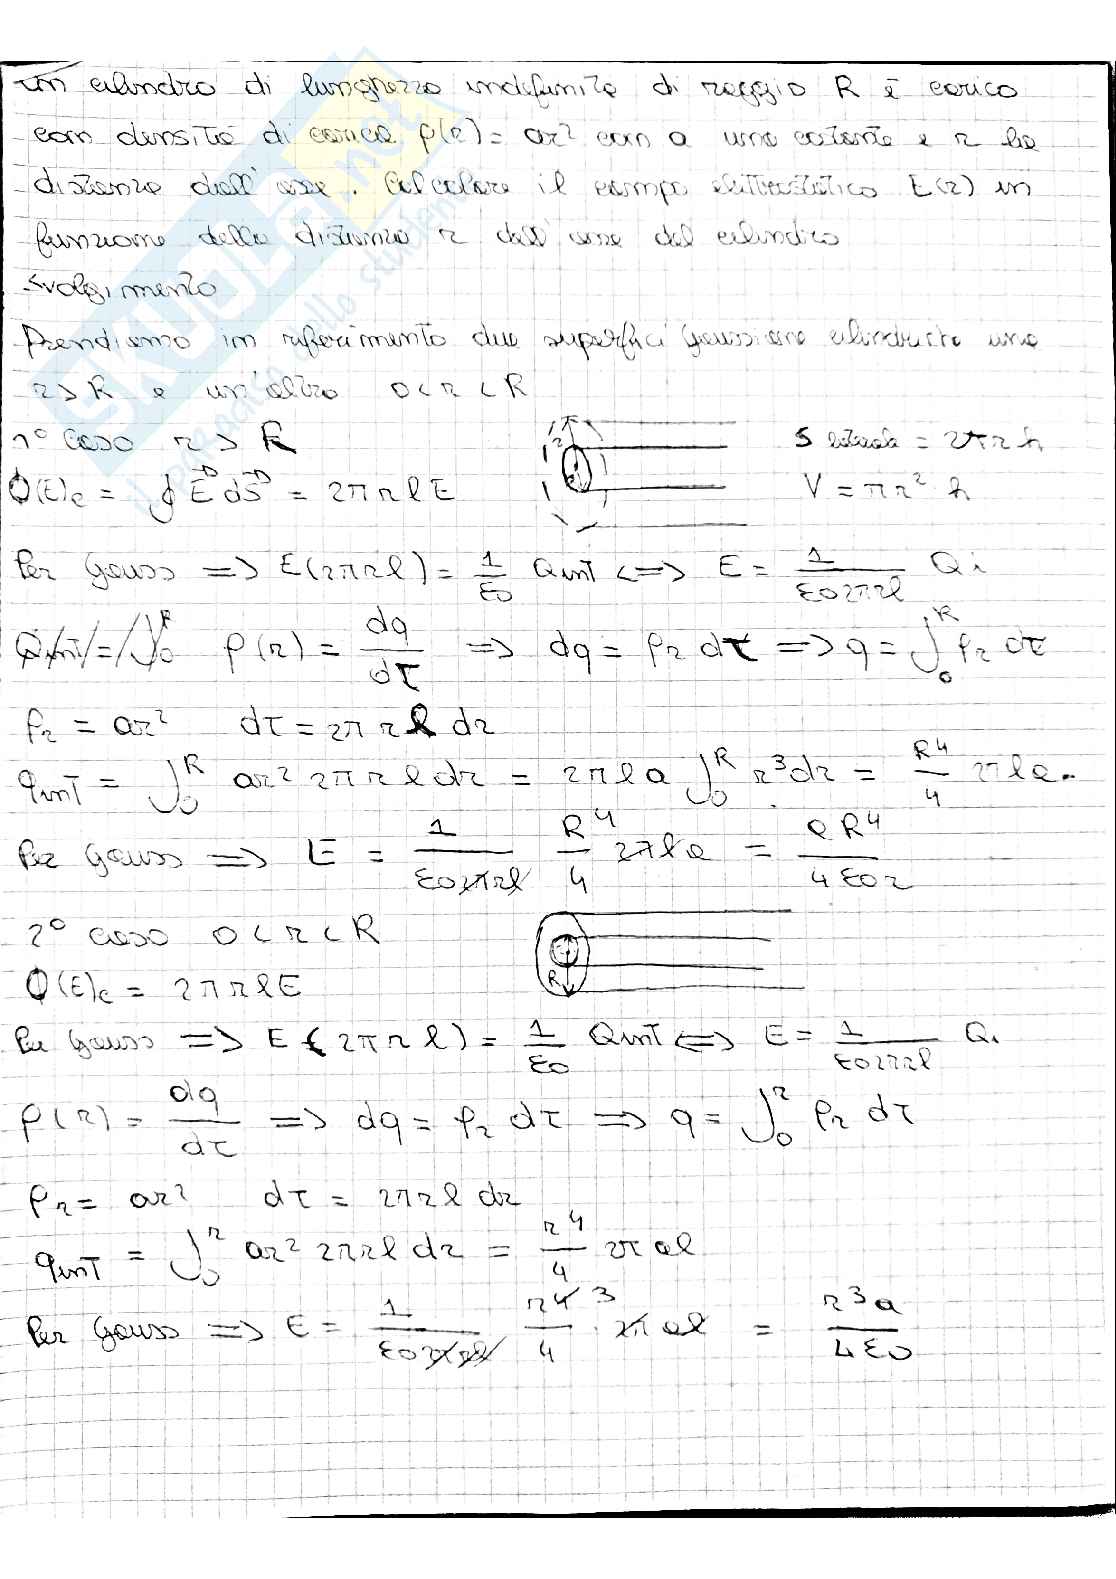 Un cilindro di lunghezza indefinita di raggio R è carico
con densità di carica ρ(r) = ar² con a una costante e r la
distanza dall'asse. Calcolare il campo elettrostatico E(r) in
funzione della distanza r dall'asse del cilindro
Svolgimento
Prendiamo in riferimento due superfici gaussiane cilindriche una
r > R e un'altra 0 < r < R
1° caso r > R
S laterale = 2πrh
Φ(E)c = ∮ E dS = 2πrlE
V = πr² h
Per Gauss => E(2πrl) = 1/ε0 Qint <=> E = 1/(ε02πrl) Qi
Qint = ∫₀ᴿ ρ(r) = dq/dτ => dq = ρr dτ => q = ∫₀ᴿ ρr dτ
ρr = ar² dτ = 2πrl dr
qint = ∫₀ᴿ ar² 2πrl dr = 2πla ∫₀ᴿ r³dr = R⁴/4 2πla.
Per Gauss => E = 1/(ε02πrl) R⁴/4 2πla = aR⁴/(4ε0r)
2° caso 0 < r < R
R
Φ(E)c = 2πrlE
Per Gauss => E(2πrl) = 1/ε0 Qint <=> E = 1/(ε02πrl) Qi
ρ(r) = dq/dτ => dq = ρr dτ => q = ∫₀ʳ ρr dτ
ρr = ar² dτ = 2πrl dr
qint = ∫₀ʳ ar² 2πrl dr = r⁴/4 2πal
Per Gauss => E = 1/(ε02πrl) r⁴ ³/4 · 2πal = r³a/(4ε0)
SKUOLA.net
il paradiso dello studente